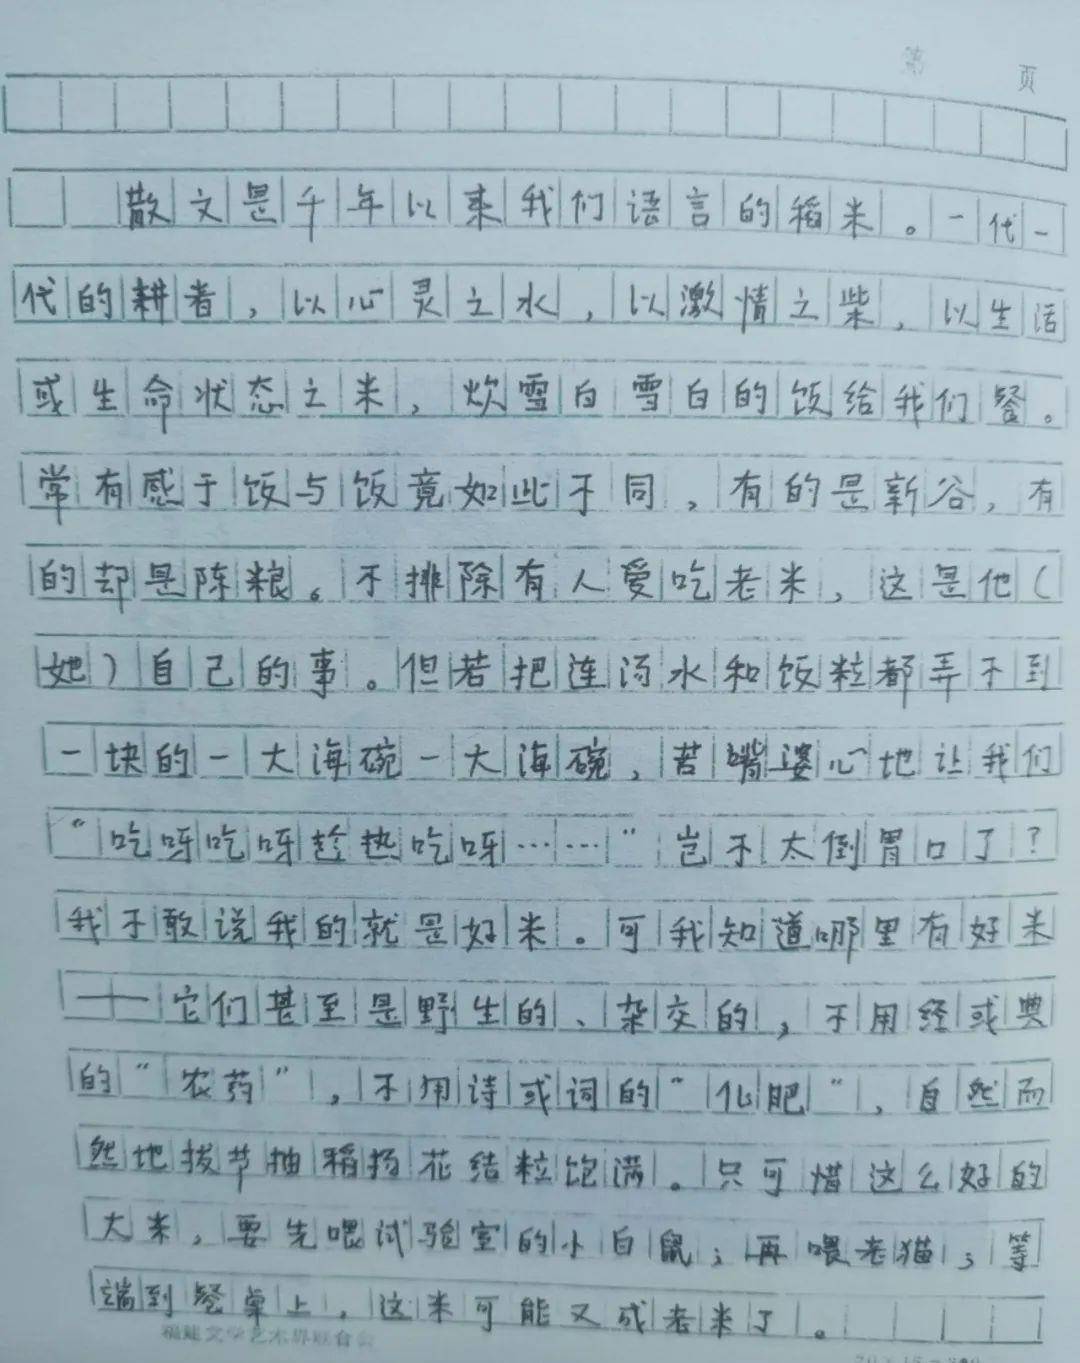 第 页
散文是千年以来我们语言的稻米。一代一
代的耕者，以心灵之水，以激情之柴，以生活
或生命状态之米，炊雪白雪白的饭给我们餐。
常有感于饭与饭竟如此不同，有的是新谷，有
的却是陈粮。不排除有人爱吃老米，这是他（
她）自己的事。但若把连汤水和饭粒都弄不到
一块的一大海碗一大海碗，苦嘴婆心地让我们
“吃呀吃呀趁热吃呀……”岂不太倒胃口了？
我不敢说我的就是好米。可我知道哪里有好米
——它们甚至是野生的、杂交的，不用经或典
的“农药”，不用诗或词的“化肥”，自然而
然地拔节抽稻扬花结粒饱满。只可惜这么好的
大米，要先喂试验室的小白鼠；再喂老猫；等
端到餐桌上，这米可能又成老米了。
福建文学艺术界联合会
20×15=300